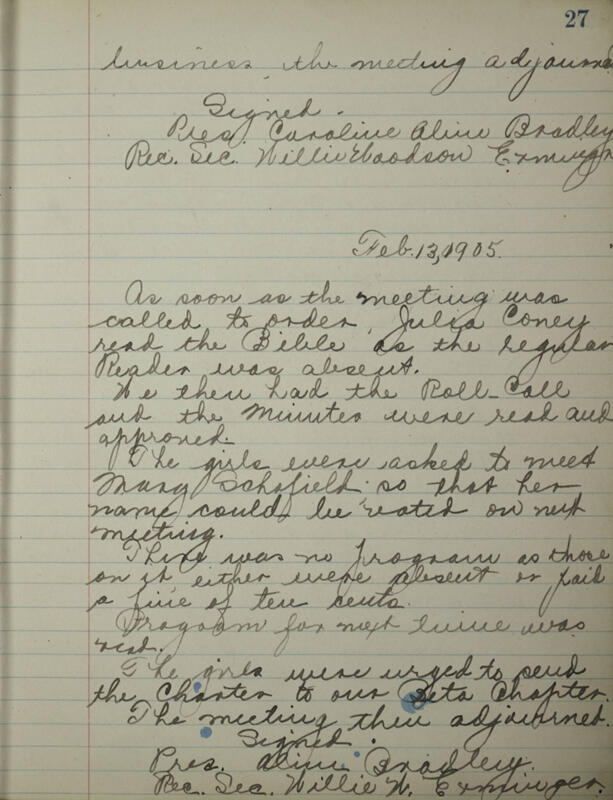 27
business the meeting adjourned
Signed.
Pres. Caroline Aline Bradley
Rec. Sec. Willie Woodson Erminger
Feb. 13, 1905.
As soon as the meeting was
called to order, Julia Coney
read the Bible as the regular
Reader was absent.
We then had the Roll-Call
and the Minutes were read and
approved.
The girls were asked to meet
Mary Schofield so that her
name could be voted on next
meeting.
There was no program as those
on it either were absent or paid
a fine of ten cents.
Program for next time was
read.
The girls were urged to send
the Charter to our Beta Chapter.
The meeting then adjourned.
Signed.
Pres. Aline Bradley.
Rec. Sec. Willie W. Erminger.